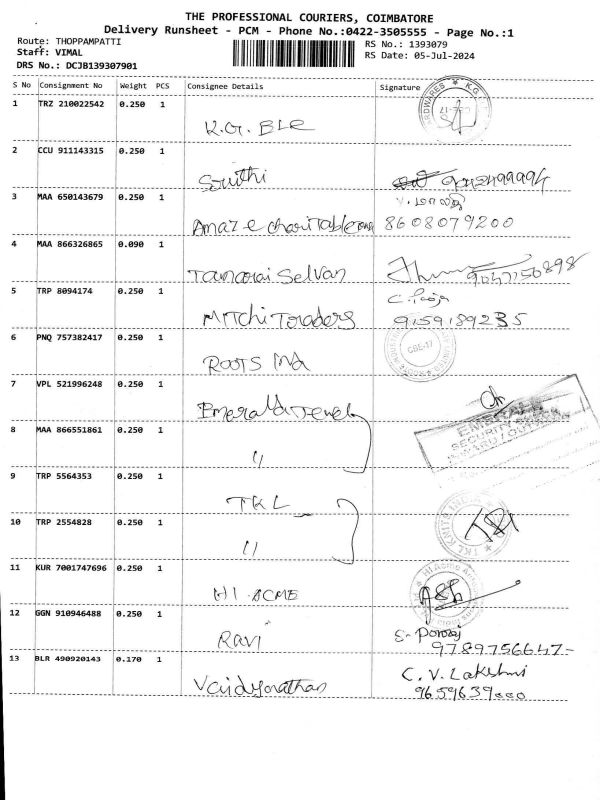 THE PROFESSIONAL COURIERS, COIMBATORE
Delivery Runsheet - PCM - Phone No.:0422-3505555 - Page No.:1
Route: THOPPAMPATTI
RS No.: 1393079
Staff: VIMAL
RS Date: 05-Jul-2024
DRS No.: DCJB139307901
S No Consignment No Weight PCS Consignee Details Signature
1 TRZ 210022542 0.250 1
K.G. BLR
CBE-17
2 CCU 911143315 0.250 1
3 MAA 650143679 0.250 1
8608079200
4 MAA 866326865 0.090 1
Tamarai Selvan
5 TRP 8094174 0.250 1
Mitchi Traders 9159189235
6 PNQ 757382417 0.250 1
CBE-17
ROOTS
7 VPL 521996248 0.250 1
Emerald Jewel
EMERALD
SECURITY
8 MAA 866551861 0.250 1
11
9 TRP 5564353 0.250 1
TKL
10 TRP 2554828 0.250 1
11
11 KUR 7001747696 0.250 1
HI-ACME
12 GGN 910946488 0.250 1
Ravi 9789756647-
13 BLR 490920143 0.170 1
C. V. Lakshmi
Vaidyanathan 9659639000